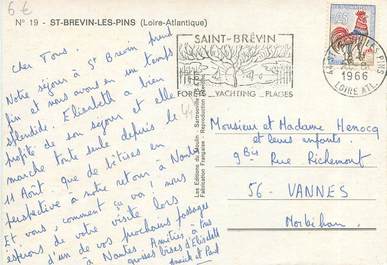 6€
N° 19 - ST-BREVIN-LES-PINS (Loire-Atlantique)
SAINT-BRÉVIN
FORÊTS _ YACHTING _ PLAGES
PINS
1966
LOIRE ATL.
Cher Tous.
Notre séjour à St Brévin prend
fin et nous avons eu un temps
splendide. Elisabeth a bien
profité de son séjour et elle
marche toute seule depuis le
11 Août. Que de bêtises en
perspective a notre retour à Nantes
Et vous, comment ça va? nous
espérons de votre visite lors
d'un de vos prochains passages
à Nantes. Amitiés à tous
grosses bises d'Elisabeth
Annick et Paul
Les Editions du Moulin
Fabrication Française - Reproduction
Monsieur et Madame Henocq
et leurs enfants.
9 Bis Rue Richemont
56 - VANNES
Morbihan